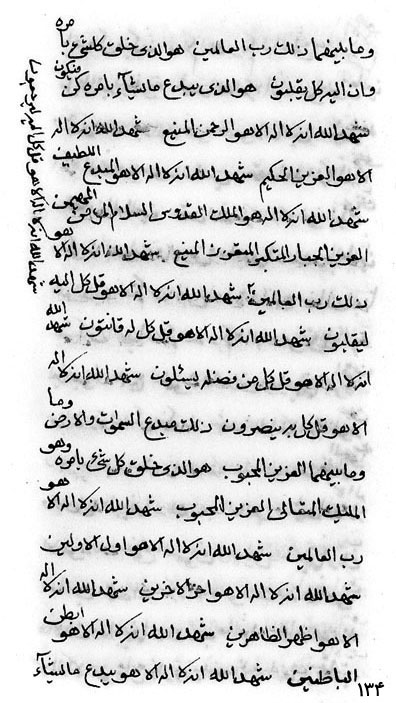 وما بينهما ذلك رب العالمين هو الذى خلق كلشئ بامره
وان اليه كل يقلبون هو الذى يبدع مايشآء بامره كن فيكون
شهد الله انه لا اله الا هو الرحمن المنيع شهد الله انه لا اله
الا هو العزيز الحكيم شهد الله انه لا اله الا هو المبدع اللطيف
شهد الله انه لا اله هو الملك القدوس السلام المؤمن المهيمن
العزيز الجبار المتكبر المنيع شهد الله انه لا اله الا هو
ذلك رب العالمين شهد الله انه لا اله الا هو قل كل اليه
ليقلبون شهد الله انه لا اله الا هو قل كل له قانتون شهد الله
انه لا اله الا هو قل كل من فضله يسئلون شهد الله انه لا اله
الا هو قل كل به ينصرون ذلك مبدع السموات والارض وما
وما بينهما العزيز المحبوب هو الذى خلق كل شئ بامره وهو
المليك المتعالى العزيز المحبوب شهد الله انه لا اله الا هو
رب العالمين شهد الله انه لا اله الا هو اول الاولين
شهد الله انه لا اله الا هو اخر الاخرين شهد الله انه لا اله
الا هو اظهر الظاهرين شهد الله انه لا اله الا هو ابطن
الباطنين شهد الله انه لا اله الا هو يبدع مايشآء
شهد الله انه لا اله الا هو قل كل اليه ليرجعون
١٣٤